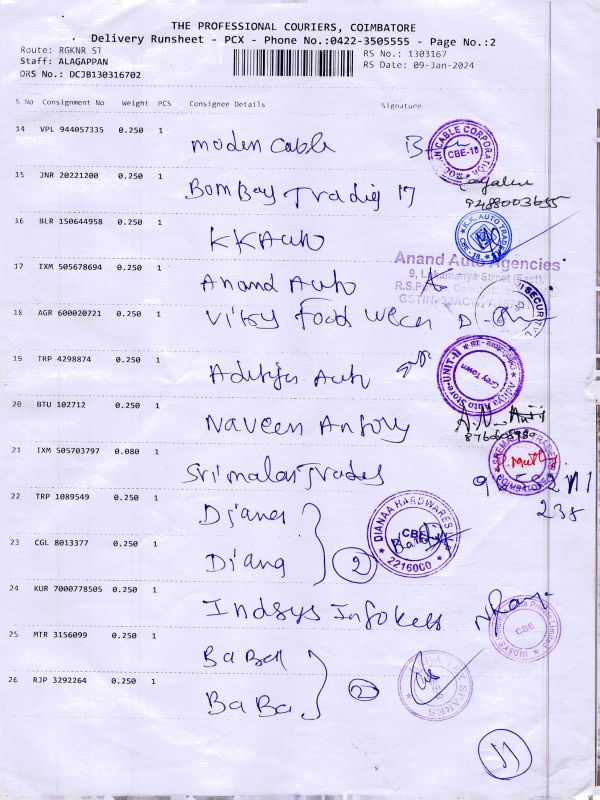 THE PROFESSIONAL COURIERS, COIMBATORE
Delivery Runsheet - PCX - Phone No.:0422-3505555 - Page No.:2
Route: RGKNR ST
RS No.: 1303167
Staff: ALAGAPPAN
RS Date: 09-Jan-2024
DRS No.: DCJB130316702
S No Consignment No Weight PCS Consignee Details Signature
14 VPL 944057335 0.250 1
moden cable
CABLE CORPORATION
CBE-18
15 JNR 20221200 0.250 1
Bombay Trading 17
9488003655
16 BLR 150644958 0.250 1
KK Auto
K.K. AUTO TRAD
CBE-18
17 IXM 505678694 0.250 1
Anand Auto
Anand Auto Agencies
9, Lokamanya Street (East),
R.S.P
GSTIN
18 AGR 600020721 0.250 1
food
SECURITY
19 TRP 4298874 0.250 1
Aditya Auto
Aditya Auto Store-UNIT-II
Grey Town
20 BTU 102712 0.250 1
Naveen Antony
21 IXM 505703797 0.080 1
Srimalar Trades
COIMBATORE
22 TRP 1089549 0.250 1
Diana
DIANAA HARDWARES
CBE
2216000
23 CGL 8013377 0.250 1
Diana
2
24 KUR 7000778505 0.250 1
Indsys Infotech
Private Limited
INDSYS
CBE
25 MTR 3156099 0.250 1
Baba
SPARES
26 RJP 3292264 0.250 1
BaBa
2
11